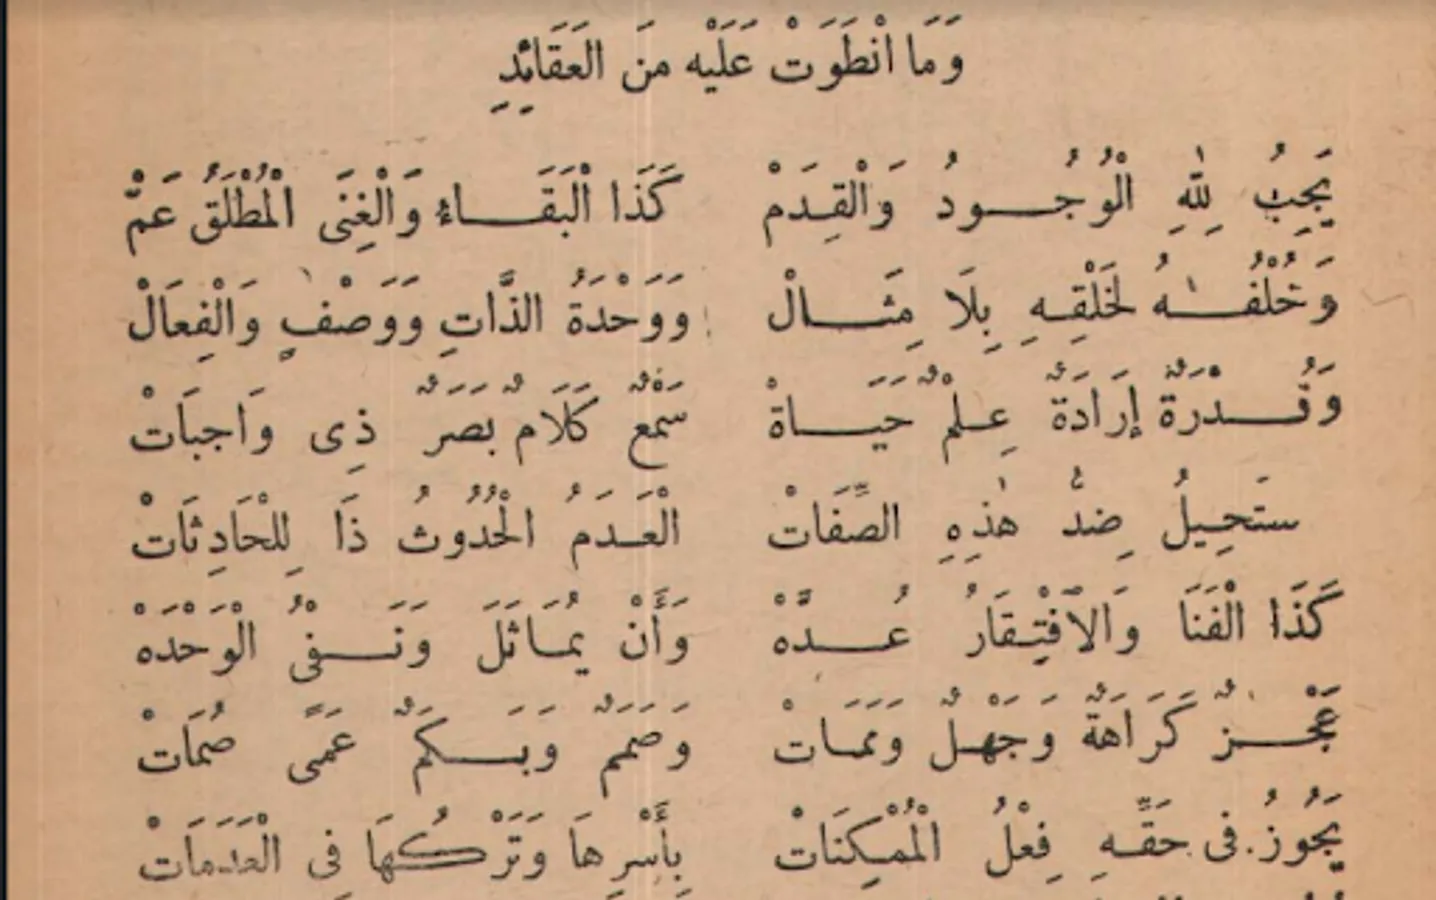 وَمَا انْطَوَتْ عَلَيْه منَ العَقَائِدِ
يَجِبُ لِلّٰهِ الْوُجُودُ وَالْقِدَمْ كَذَا الْبَقَاءُ وَالْغِنَى الْمُطْلَقُ عَمّْ
وَخُلْفُهُ لِخَلْقِهِ بِلَا مِثَالْ وَوَحْدَةُ الذَّاتِ وَوَصْفٍ وَالْفِعَالْ
وَقُدْرَةٌ إرَادَةٌ عِلْمٌ حَيَاةْ سَمْعٌ كَلَامٌ بَصَرٌ ذِى وَاجبَاتْ
ستَحِيلُ ضِدُّ هٰذِهِ الصِّفَاتْ الْعَدَمُ الْحُدُوثُ ذَا لِلْحَادِثَاتْ
كَذَا الْفَنَا وَالاْفْتِقَارُ عُدَّهْ وَأَنْ يُمَاثَلَ وَنَفْىُ الْوَحْدَهْ
عَجْزٌ كَرَاهَةٌ وَجَهْلٌ وَمَمَاتْ وَصَمَمٌ وَبَكَمٌ عَمًى صُمَاتْ
يَجُوزُ فى حَقِّهِ فِعْلُ الْمُمْكِنَاتْ بِأَسْرِهَا وَتَرْكُهَا فِى الْعَدَمَاتْ